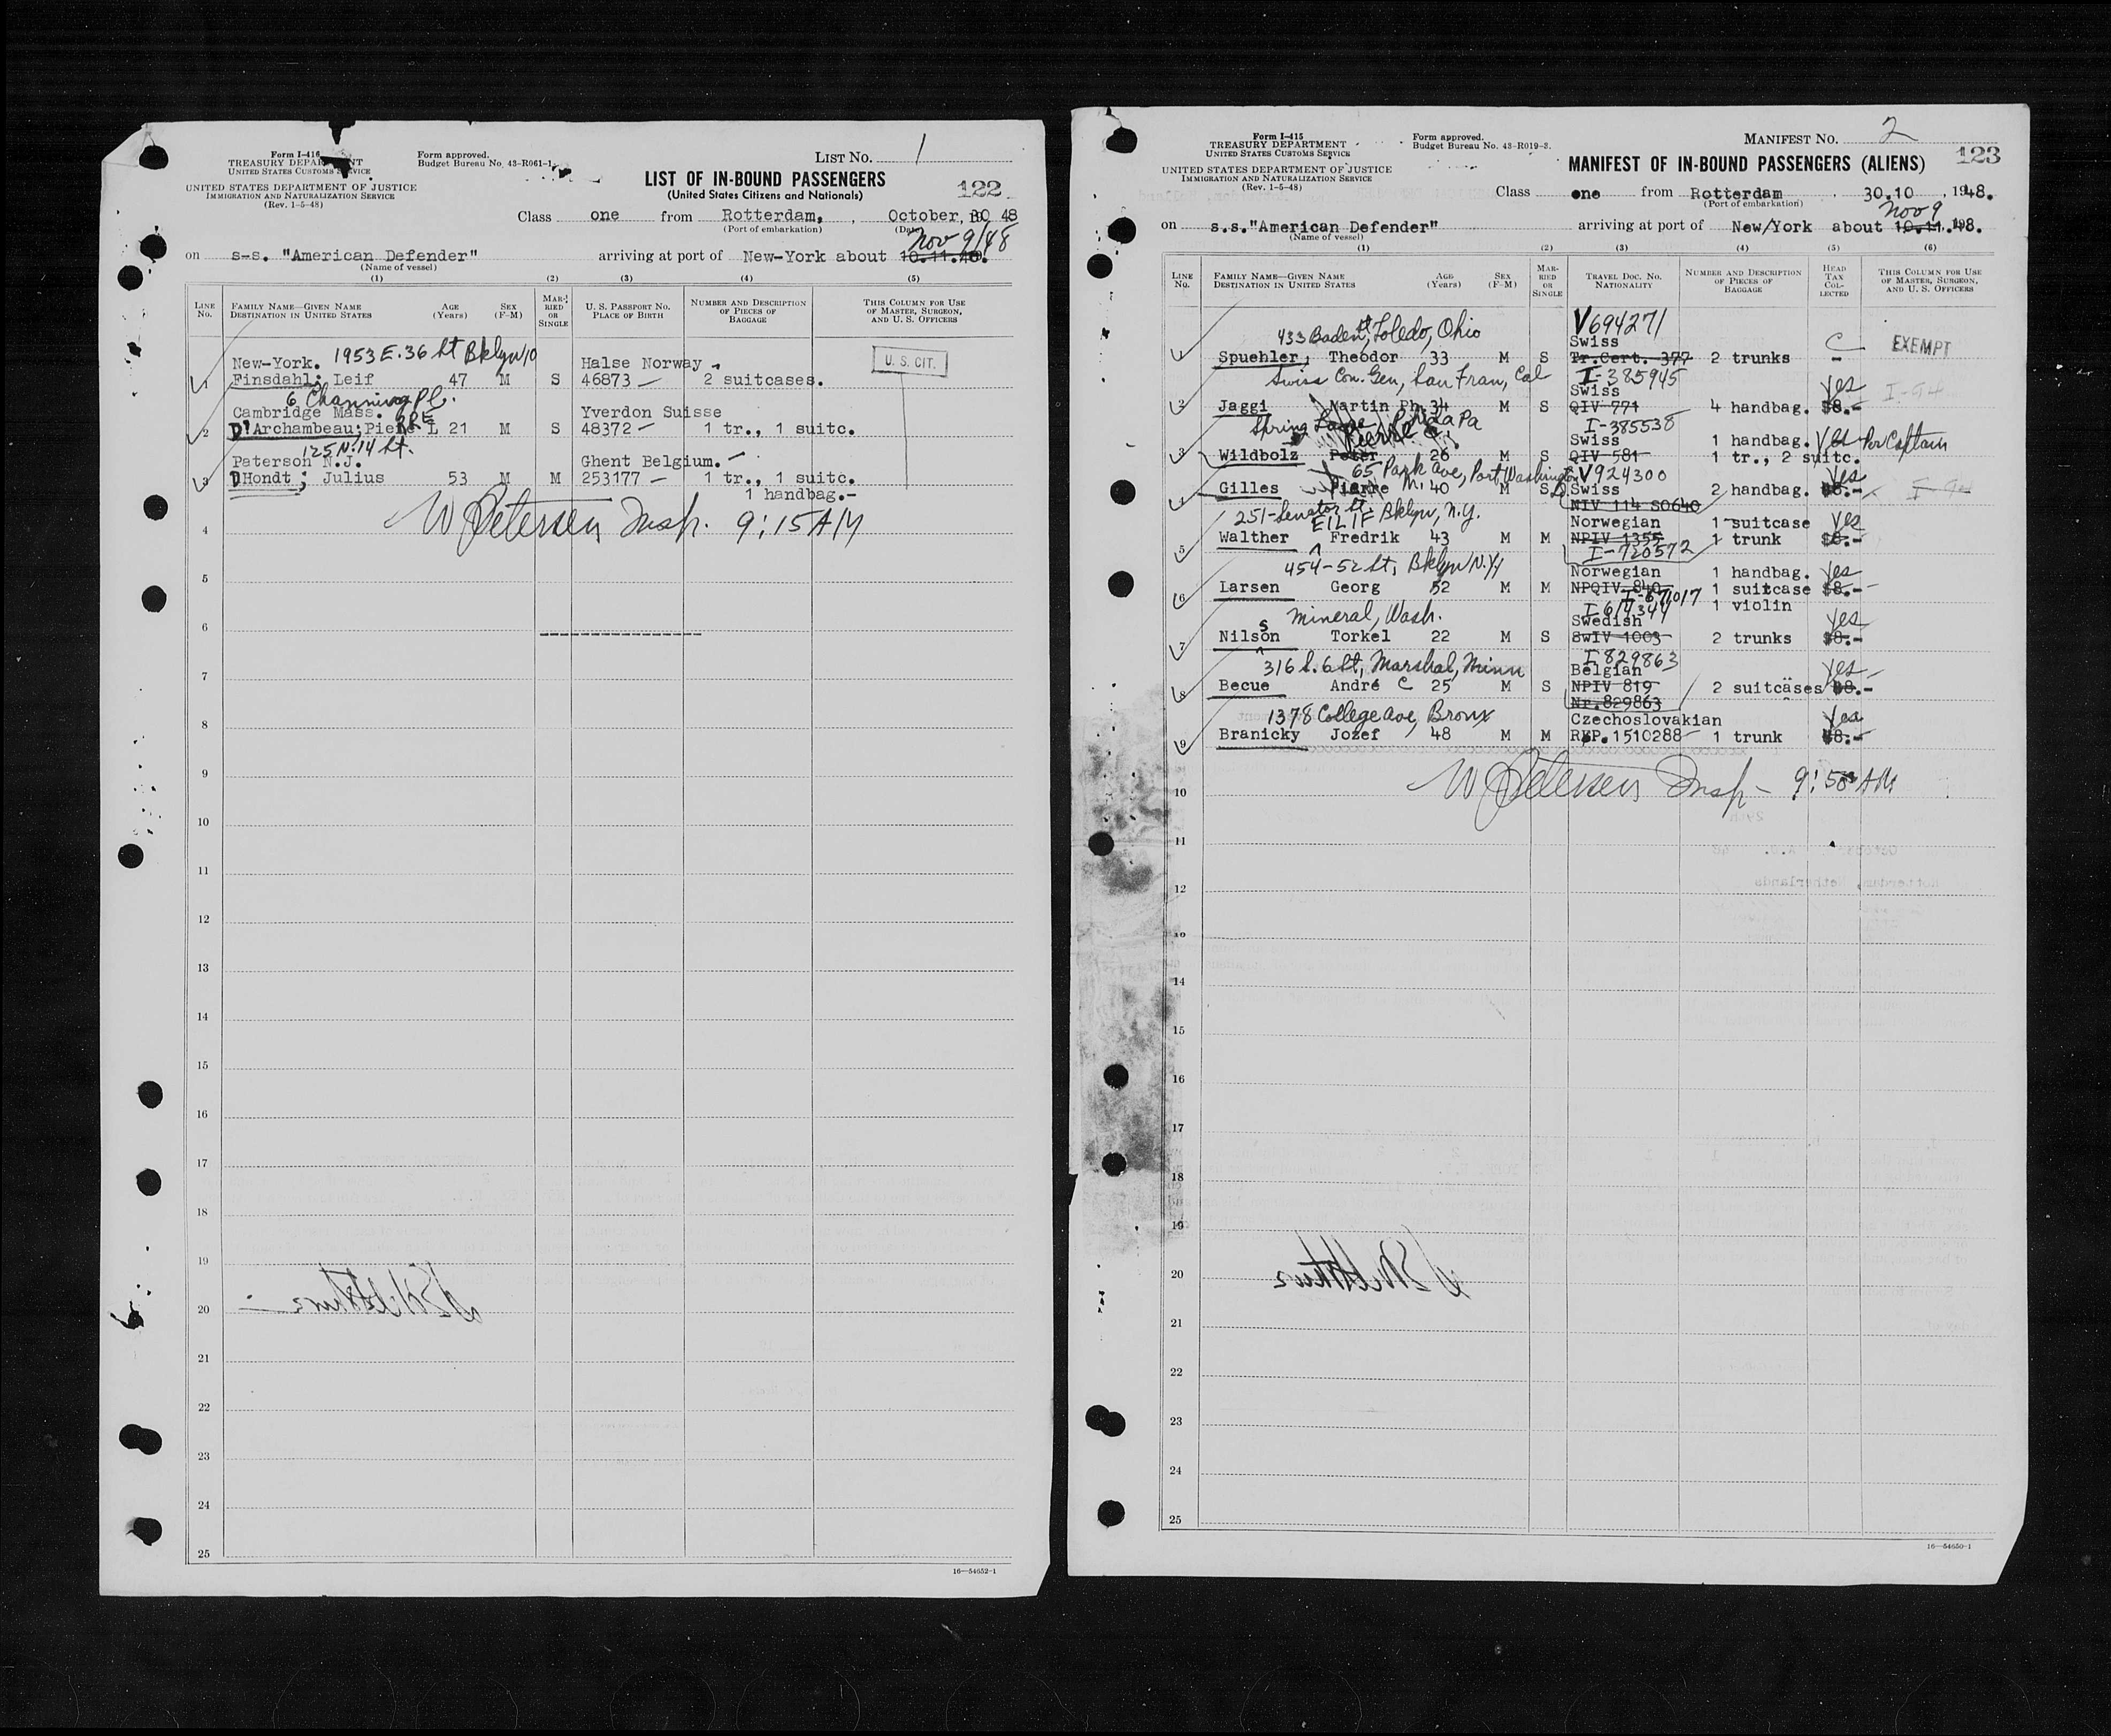 Form I-416
TREASURY DEPARTMENT
UNITED STATES CUSTOMS SERVICE
Form approved.
Budget Bureau No. 43-R061-1.
LIST NO. 1
UNITED STATES DEPARTMENT OF JUSTICE
IMMIGRATION AND NATURALIZATION SERVICE
(Rev. 1-5-48)
LIST OF IN-BOUND PASSENGERS
(United States Citizens and Nationals)
122
Class one from Rotterdam, October, 30 48
(Port of embarkation) (Date)
Nov 9/48
on s-s. "American Defender" arriving at port of New-York about 10.11.48.
(Name of vessel)
(1) (2) (3) (4) (5)
LINE No. FAMILY NAME—GIVEN NAME DESTINATION IN UNITED STATES AGE (Years) SEX (F-M) MARRIED OR SINGLE U. S. PASSPORT NO. PLACE OF BIRTH NUMBER AND DESCRIPTION OF PIECES OF BAGGAGE THIS COLUMN FOR USE OF MASTER, SURGEON, AND U. S. OFFICERS
New-York. 1953 E. 36 St Bklyn 10 Halse Norway U. S. CIT.
1 Finsdahl; Leif 47 M S 46873 — 2 suitcases.
6 Channing Pl.
Cambridge Mass. Yverdon Suisse
2 D'Archambeau; Pierre L 21 M S 48372 — 1 tr., 1 suitc.
125 N. 14 St.
Paterson N.J. Ghent Belgium.
3 DHondt ; Julius 53 M M 253177 — 1 tr., 1 suitc.
1 handbag.-
4 W Petersen Insp. 9:15 AM
5
6
7
8
9
10
11
12
13
14
15
16
17
18
19
20
21
22
23
24
25
16—54652-1
Form I-415
TREASURY DEPARTMENT
UNITED STATES CUSTOMS SERVICE
Form approved.
Budget Bureau No. 43-R019-3.
MANIFEST NO. 2
UNITED STATES DEPARTMENT OF JUSTICE
IMMIGRATION AND NATURALIZATION SERVICE
(Rev. 1-5-48)
MANIFEST OF IN-BOUND PASSENGERS (ALIENS)
123
Class one from Rotterdam 30.10 , 1948.
(Port of embarkation)
Nov 9
on s.s."American Defender" arriving at port of New/York about 10.11.198.
(Name of vessel)
(1) (2) (3) (4) (5) (6)
LINE No. FAMILY NAME—GIVEN NAME DESTINATION IN UNITED STATES AGE (Years) SEX (F-M) MARRIED OR SINGLE TRAVEL DOC. NO. NATIONALITY NUMBER AND DESCRIPTION OF PIECES OF BAGGAGE HEAD TAX COLLECTED THIS COLUMN FOR USE OF MASTER, SURGEON, AND U. S. OFFICERS
V694271
433 Baden St, Toledo, Ohio Swiss C EXEMPT
1 Spuehler, Theodor 33 M S Tr.Cert. 377 2 trunks -
Swiss Con. Gen, San Fran, Cal I-385945
Swiss yes I-94
2 Jaggi Martin Ph. 34 M S QIV 771 4 handbag. $8.-
Spring Phila Pa I-385538
Swiss 1 handbag. Per Captain
3 Wildbolz Peter 26 S QIV 581 1 tr., 2 suitc.
65 Park Ave, Port Washington V924300 yes
4 Gilles Pierre M. 40 M S D Swiss 2 handbag. $8.-
NIV 114 S0640
251-Senator St. Bklyn, N.Y. Norwegian 1 suitcase yes
EILIF
5 Walther Fredrik 43 M M NPIV 1355 1 trunk $8.-
I-720572
454-52 St, Bklyn N.Y Norwegian 1 handbag. yes
6 Larsen Georg 52 M M NPQIV 840 1 suitcase $8.-
I-671017 1 violin
I-614344
Mineral, Wash. Swedish yes
s
7 Nilson Torkel 22 M S SwIV 1003 2 trunks $8.-
I-829863
316 S. 6 St, Marshal, Minn Belgian yes
8 Becue André C 25 M S NPIV 819 2 suitcases $8.-
NP.829863
1378 College Ave, Bronx Czechoslovakian yes
9 Branicky Jozef 48 M M REP.1510288 1 trunk $8.-
10 W Petersen Insp - 9:50 AM
11
12
13
14
15
16
17
18
19
20
21
22
23
24
25
16—54650-1